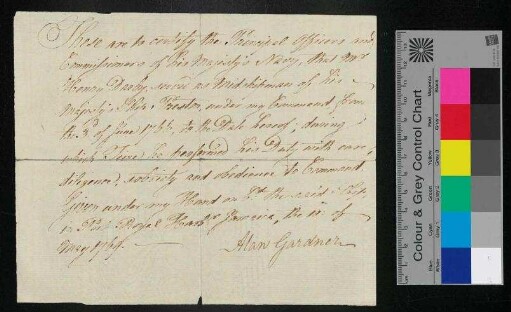 These are to certify the Principal Officers and
Commissioners of his Majesty's Navy, that Mr
Henry Darby, served as Midshipman of his
Majesty's Ship Preston, under my Command, from
the 3d of June 1766, to the Date hereof; during
which Time he performed his Duty with care,
diligence, sobriety and obedience to Command.
Given under my Hand on Bd the said Ship
in Port Royal Harbr Jamaica, the of
May 1768.
Alan Gardner
Colour & Grey Control Chart